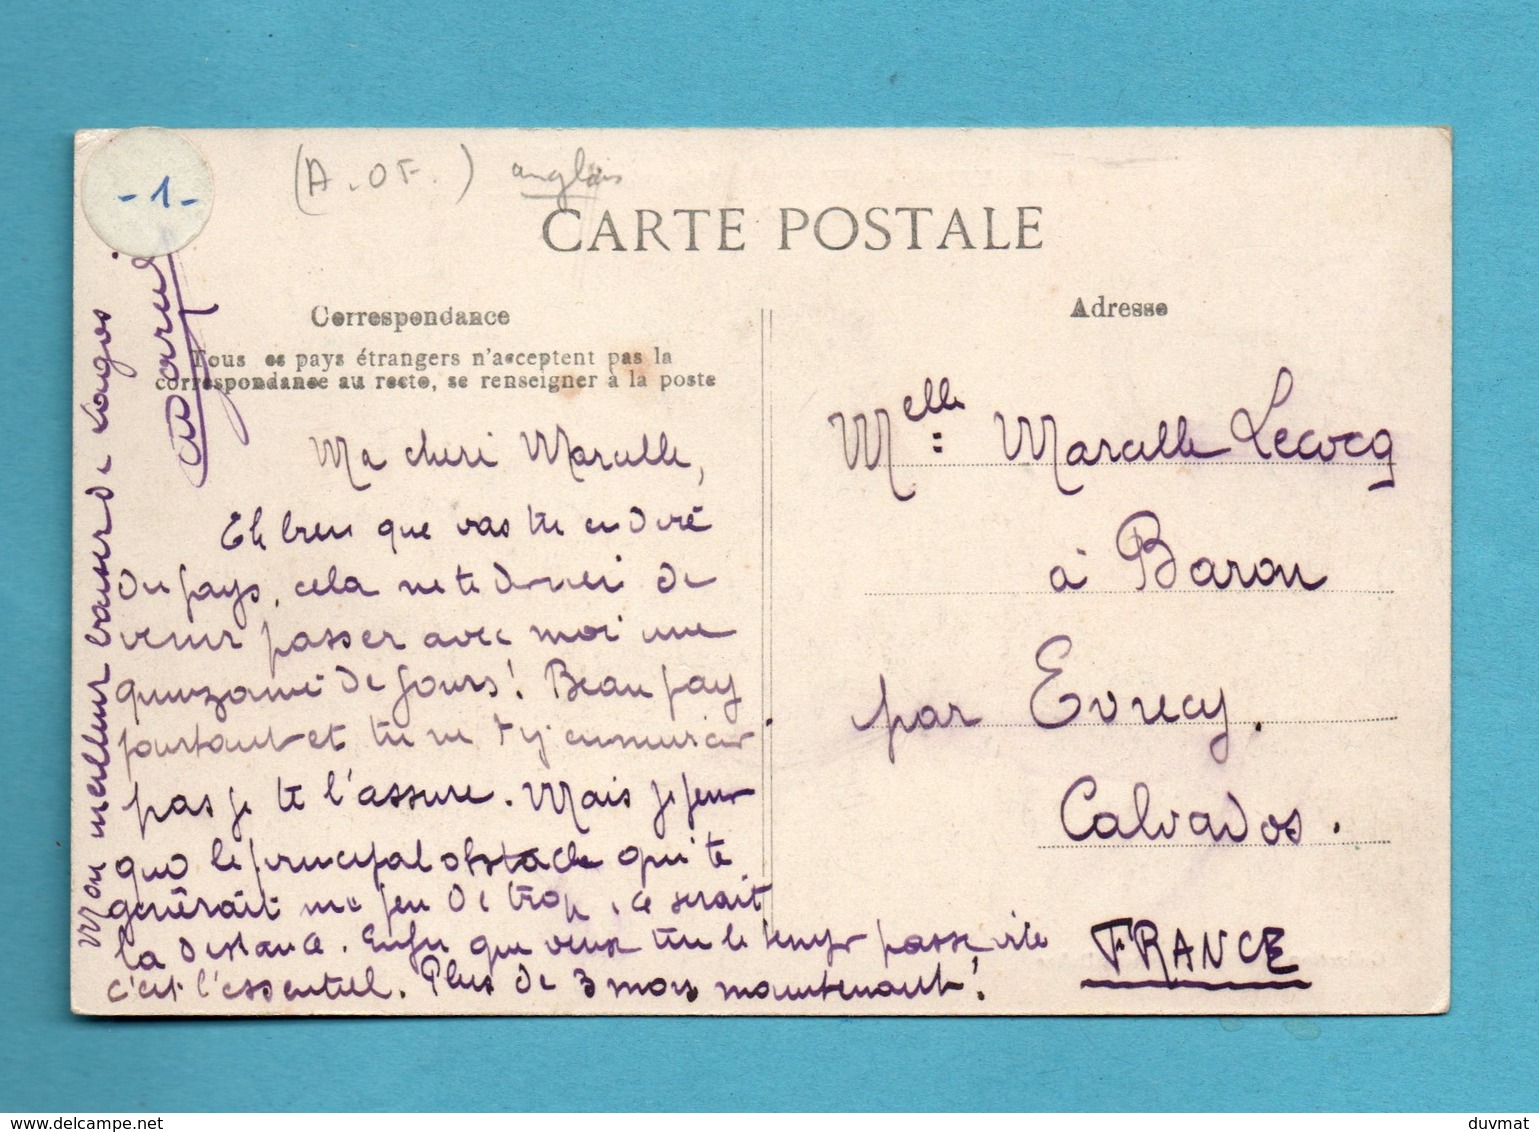 -1-
(A.O.F.) anglais
CARTE POSTALE
Correspondance
Tous les pays étrangers n'acceptent pas la
correspondance au recto, se renseigner à la poste
Adresse
Ma cheri Marcelle,
Eh bien que vas tu en diré
du pays, cela ne te di de
venir passer avec moi une
quinzaine de jours! Beau pay
pourtant et tu ne t'y ennuirai
pas je te l'assure. Mais je peux
que le principal obstacle qui te
generait un peu de trop, ce serait
la distance. Enfin que veux tu le temps passe vite
c'est l'essentiel. Plus de 3 mois maintenant!
Mon meilleur baiser de Lagos
Melle Marcelle Lecocq
à Baron
par Evrecy.
Calvados.
FRANCE
www.delcampe.net
duvmat